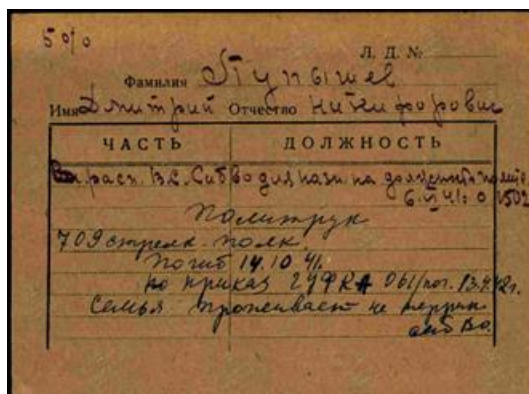 50/0
Л. Д. №
Фамилия Тупышев
Имя Дмитрий Отчество Никифорович
ЧАСТЬ ДОЛЖНОСТЬ
В расп. В.С. СибВО для назн. на должность полит.
6.VI 41. 0 1502
Политрук
709 стрелк. полк.
Погиб 14.10 41.
по приказ ГУФКА 061/пог. 13.4.42г.
Семья проживает на террит.
СибВО.